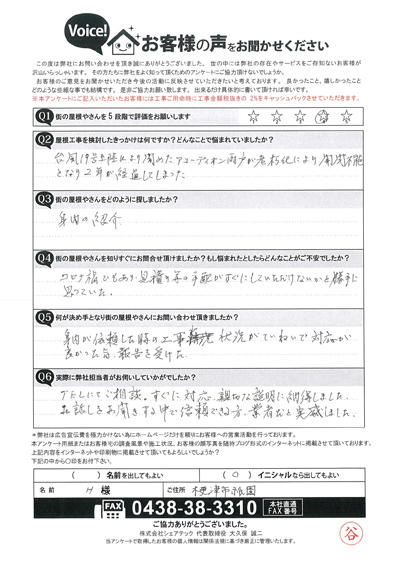 Voice!
お客様の声をお聞かせください
この度は弊社にお問い合わせを頂き誠にありがとうございました。世の中には弊社の存在やサービスをご存知ないお客様が
沢山いらっしゃいます。その方たちに弊社をよく知って頂くためのアンケートにご協力頂けないでしょうか。
お客様のご意見をお聞かせいただき今後の活動に反映させていただきたいと考えております。良かったこと、嬉しかったこと
どのような些細な事でも結構です。是非ご協力お願い致します。出来るだけ具体的に書いて頂ければ幸いです。
※本アンケートにご記入いただいたお客様には工事ご用命時に工事金額税抜きの2%をキャッシュバックさせていただきます。
Q1 街の屋根やさんを5段階で評価をお願いします ☆ ☆ ☆ ☆ ☆
Q2 屋根工事を検討したきっかけは何ですか？どんなことで悩まれていましたか？
台風19号上陸により閉めたアコーディオン雨戸が老朽化により開閉不能
となり2年が経過してしまった
Q3 街の屋根やさんをどのように探しましたか？
身内の紹介
Q4 街の屋根やさんを知りすぐにお問合せ頂けましたか？もし悩まれたとしたらどんなことがご不安でしたか？
コロナ禍でもあり、見積り等の手配がすぐにしていただけないかと勝手に
思っていた。
Q5 何が決め手となり街の屋根やさんにお問い合わせ頂きましたか？
身内が依頼した時の工事状況がていねいで対応が
良かった旨、報告を受けた
Q6 実際に弊社担当者がお伺いしていかがでしたか？
TELにてご相談、すぐに対応、親切な説明に納得しました。
お話しをお聞きする中で信頼できる方、業者だと実感しました。
※弊社は広告宣伝費を極力かけない為にホームページだけを頼りにお客様への営業活動を行っております。
本アンケート用紙またはお客様宅の調査風景や施工状況、お客様の顔写真を随時ブログ形式のインターネットに掲載させて頂いております。
上記内容をインターネットや印刷物に掲載させて頂いてもよろしいでしょうか？
下記の中から○印をお付下さい。
（　）名前を出してもよい （○）イニシャルなら出してもよい
名前 H 様 ご住所 木更津市祇園
FAX 0438-38-3310 本社直通 FAX番号
ご協力ありがとうございました。
株式会社シェアテック 代表取締役 大久保 誠二
当アンケートで取得したお客様の個人情報は関係法規に基づき厳正に管理いたします。
谷